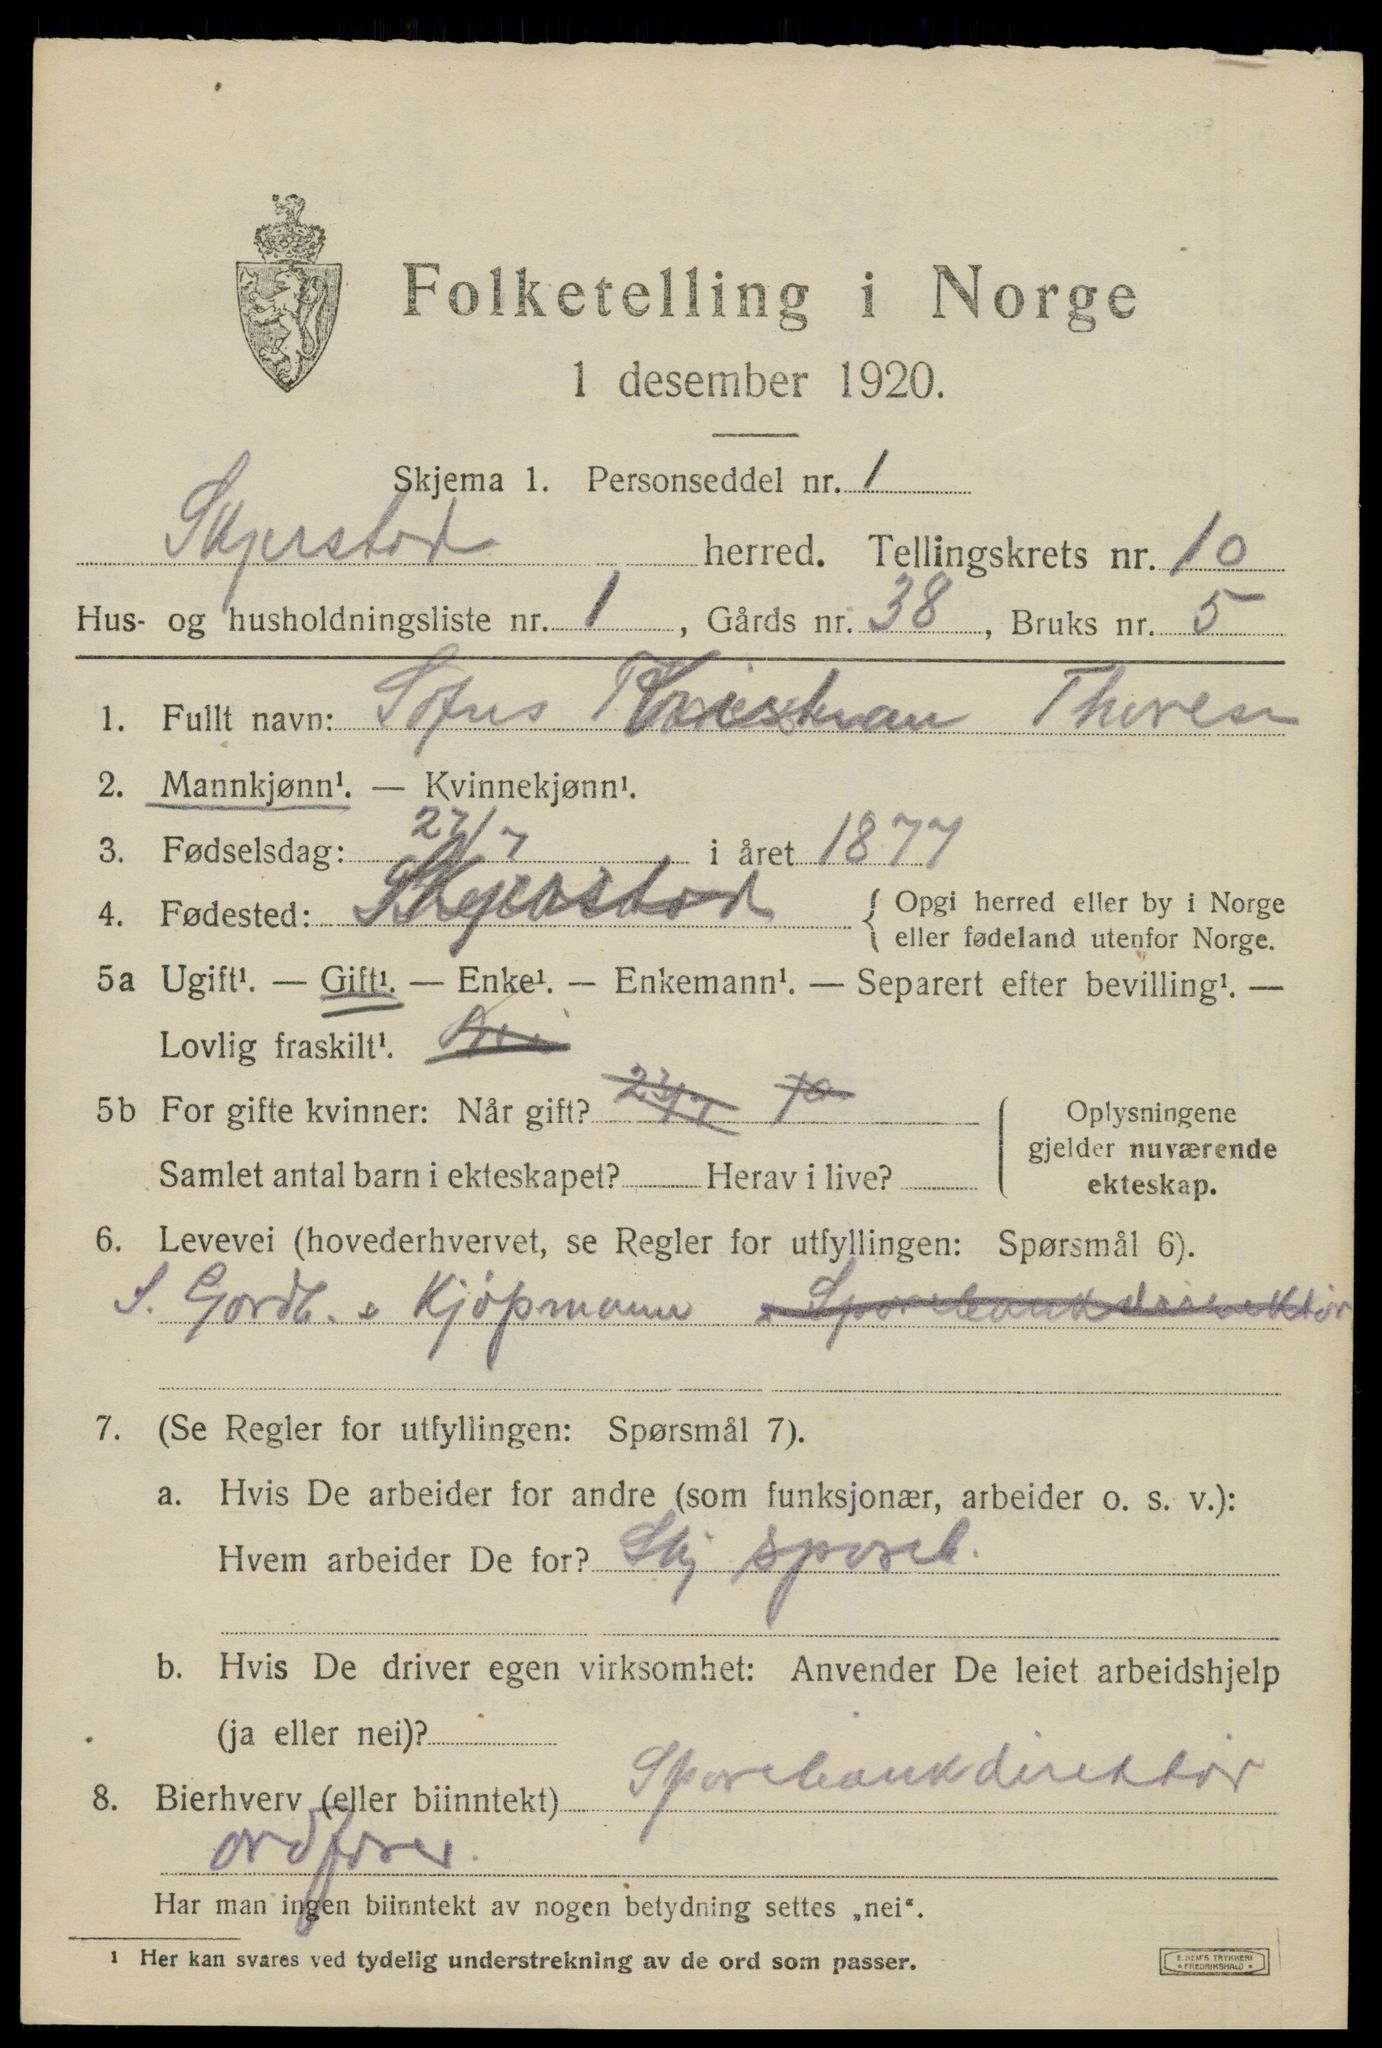 Folketelling i Norge
1 desember 1920.
Skjema 1. Personseddel nr. 1
Skjerstad herred. Tellingskrets nr. 10
Hus- og husholdningsliste nr. 1, Gårds nr. 38, Bruks nr. 5
1. Fullt navn: Sofus Kristian Thoresen
2. Mannkjønn¹. — Kvinnekjønn¹.
3. Fødselsdag: 27/7 i året 1877
4. Fødested: Skjerstad { Opgi herred eller by i Norge
eller fødeland utenfor Norge.
5a Ugift¹. — Gift¹. — Enke¹. — Enkemann¹. — Separert efter bevilling¹. —
Lovlig fraskilt¹.
5b For gifte kvinner: Når gift?
Samlet antal barn i ekteskapet? Herav i live?
Oplysningene
gjelder nuværende
ekteskap.
6. Levevei (hovederhvervet, se Regler for utfyllingen: Spørsmål 6).
S. Gardb. & Kjøpmann & Sparebankdirektør
7. (Se Regler for utfyllingen: Spørsmål 7).
a. Hvis De arbeider for andre (som funksjonær, arbeider o. s. v.):
Hvem arbeider De for? Skj spareb.
b. Hvis De driver egen virksomhet: Anvender De leiet arbeidshjelp
(ja eller nei)?
8. Bierhverv (eller biinntekt) Sparebankdirektør
ordfører.
Har man ingen biinntekt av nogen betydning settes „nei“.
¹ Her kan svares ved tydelig understrekning av de ord som passer.
E. SEM'S TRYKKERI
FREDRIKSHALD